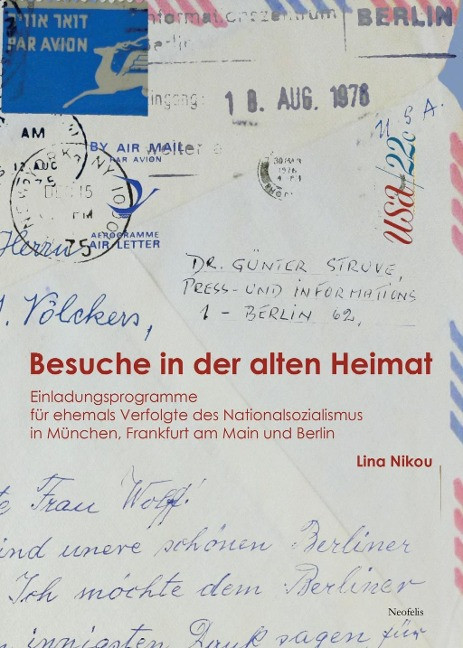 דואר אויר
PAR AVION
Informationszentrum
BERLIN
Berlin
18. AUG. 1976
AM
BY AIR MAIL
PAR AVION
AEROGRAMME
AIR LETTER
NEW YORK, NY
PM
75
30 MAR
1976
U.S.A.
usa/22c
Herrn
Völckers,
DR. GÜNTER STRUVE,
PRESS-UND INFORMATIONS
1 - BERLIN 62,
Besuche in der alten Heimat
Einladungsprogramme
für ehemals Verfolgte des Nationalsozialismus
in München, Frankfurt am Main und Berlin
Lina Nikou
te Frau Wolff!
ind unere schönen Berliner
Ich möchte dem Berliner
Neofelis
innigsten Dank sagen für